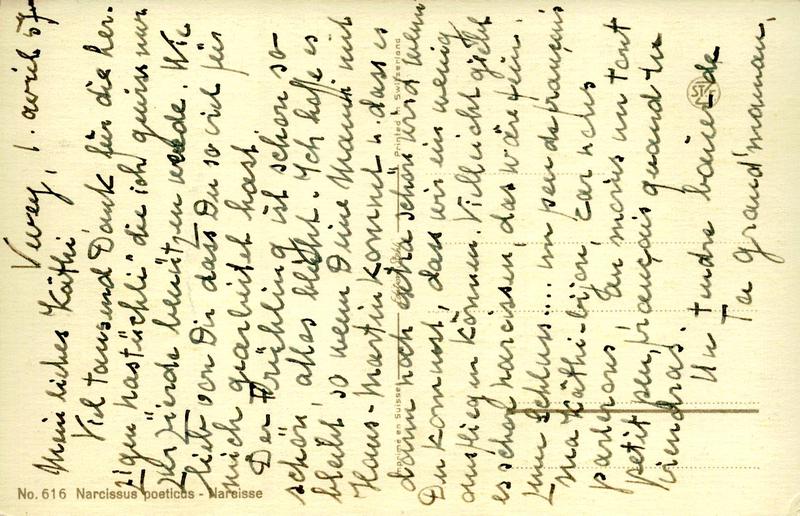 Vevey, 1. avril 57
Mein liebes Käthi
Viel tausend Dank für die her-
zigen nastüchli die ich gewiss nur
zur zierde benützen werde. Wie
lieb von Dir dass Du so viel für
mich gearbeitet hast.
Der Frühling ist schon so
schön, alles blüht. Ich hoffe es
bleibt so wenn Deine Mammi mit
Hans-Martin kommt u. dass es
dann noch extra schön wird wenn
Du kommst, dass wir ein wenig
ausfliegen können. Vielleicht giebt
es schon narcissen, das wäre fein.
Zum Schluss.... un peu de français
ma Käthi-bijou, car nous
parlerons au moins un tout
petit peu français quand tu
viendras.
Un tendre baiser de
Ta grand'maman.
No. 616 Narcissus poeticus - Narcisse
Imprimé en Suisse
Printed in Switzerland